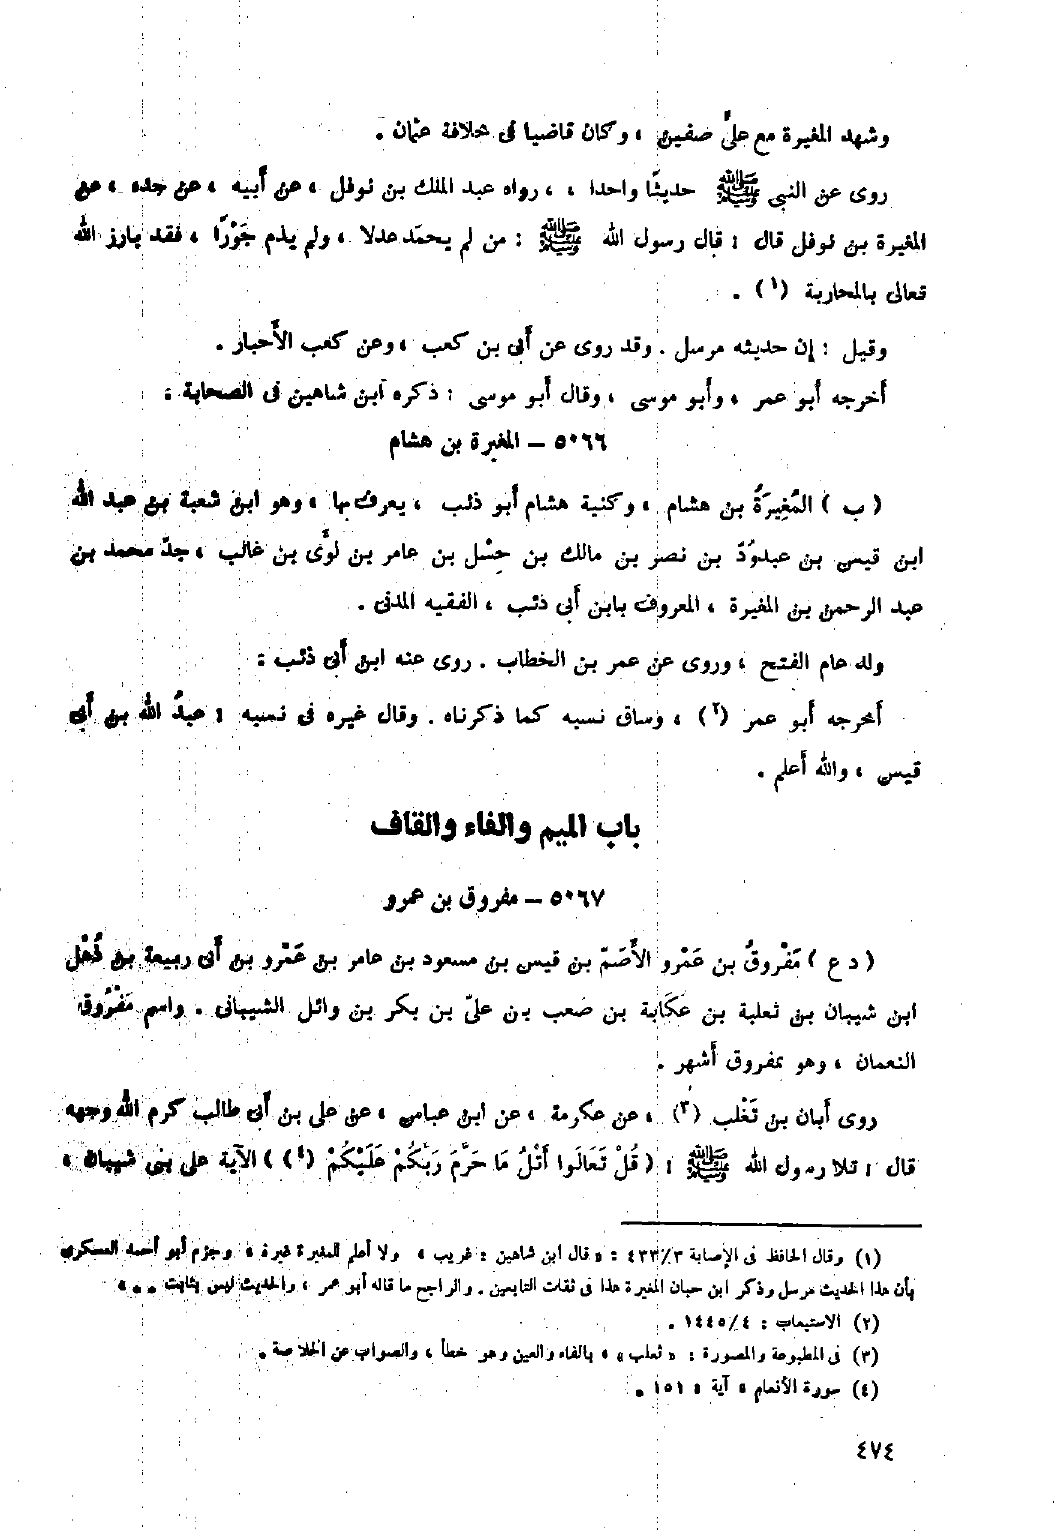 وشهد المغيرة مع علىّ صفين ، وكان قاضيا فى خلافة عثمان .
روى عن النبى ﷺ حديثًا واحدا ، ، رواه عبد الملك بن نوفل ، عن أبيه ، عن جده ، عن
المغيرة بن نوفل قال : قال رسول الله ﷺ : من لم يحمَد عدلا ، ولم يذم جَوْرًا ، فقد بارز الله
تعالى بالمحاربة (١) .
وقيل : إن حديثه مرسل . وقد روى عن أبى بن كعب ، وعن كعب الأحبار .
أخرجه أبو عمر ، وأبو موسى ، وقال أبو موسى : ذكره ابن شاهين فى الصحابة :
٥٠٦٦ – المغيرة بن هشام
( ب ) المُغِيرَةُ بن هشام ، وكنية هشام أبو ذئب ، يعرف بها ، وهو ابن شعبة بن عبد الله
ابن قيس بن عبدوُدّ بن نصر بن مالك بن حِسْل بن عامر بن لؤى بن غالب ، جدّ محمد بن
عبد الرحمن بن المغيرة ، المعروف بابن أبى ذئب ، الفقيه المدنى .
ولد عام الفتح ، وروى عن عمر بن الخطاب . روى عنه ابن أبى ذئب :
أخرجه أبو عمر (٢) ، وساق نسبه كما ذكرناه . وقال غيره فى نسبه : عبدُ الله بن أبى
قيس ، والله أعلم .
باب الميم والفاء والقاف
٥٠٦٧ – مفروق بن عمرو
( د ع ) مَفْروقُ بن عَمْرو الأَصَمّ بن قيس بن مسعود بن عامر بن عَمْرو بن أبى ربيعة بن ذُهْل
ابن شيبان بن ثعلبة بن عَكَابة بن صَعب بن علىّ بن بكر بن وائل الشيبانى . واسم مَفْرُوق
النعمان ، وهو بمفروق أشهر .
روى أبان بن تَغْلب (٣) ، عن عكرمة ، عن ابن عباس ، عن على بن أبى طالب كرم الله وجهه
قال : تلا رسول الله ﷺ : ( قُلْ تَعَالَوا أَتْلُ مَا حَرَّمَ رَبُّكُمْ عَلَيْكُمْ (٤) ) الآية على بنى شيبان ،
(١) وقال الحافظ فى الإصابة ٤٣٣/٣ : « قال ابن شاهين : غريب ، ولا أعلم للمغيرة غيره ، وجزم أبو أحمد العسكرى
بأن هذا الحديث مرسل وذكر ابن حبان المغيرة هذا فى ثقات التابعين . والراجح ما قاله أبو عمر ، والحديث ليس بثابت . . »
(٢) الاستيعاب : ١٤٤٥/٤ .
(٣) فى المطبوعة والمصورة : « ثعلب ، ، بالفاء والعين وهو خطأ ، والصواب عن الخلاصة .
(٤) سورة الأنعام ، آية : ١٥١ .
٤٧٤